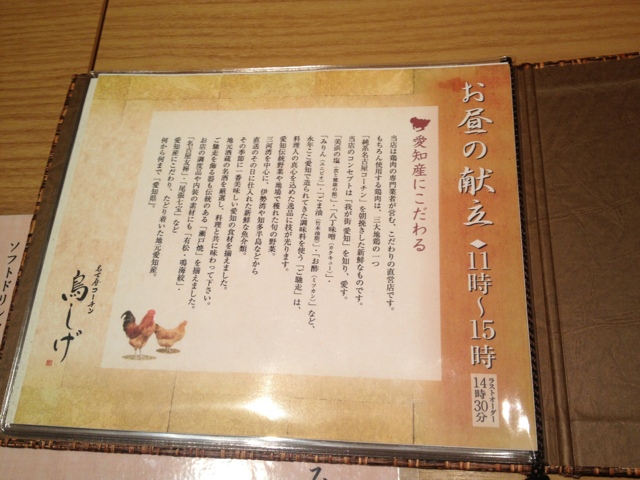 お昼の献立◆11時〜15時
ラストオーダー
14時30分
愛知産にこだわる
当店は鶏肉の専門業者が営む、こだわりの直営店です。
もちろん使用する鶏肉は、三大地鶏の一つ
「純系名古屋コーチン」を朝挽きした新鮮なものです。
当店のコンセプトは「我が街 愛知」を知り、愛す。
「美浜の塩」「八丁味噌（カクキュー）」
「みりん」「ごま油（竹本油脂）」「お酢（ミツカン）」など、
永年ここ愛知で造られてきた調味料を使う「ご馳走」は、
料理人の真心を込めた逸品に技が光ります。
愛知伝統野菜や地場で穫れた旬の野菜、
三河湾を中心に、伊勢湾や知多半島などから
直送のその日に仕入れた新鮮な魚介類。
その季節に一番美味しい愛知の食材を揃えました。
地元酒蔵の名酒を厳選し、料理と共に味わって下さい。
ご馳走を飾る器も伝統のある「瀬戸焼」を揃えました。
お店の調度品や内装の素材にも「有松・鳴海絞」・
「名古屋友禅」・「尾張七宝」など
愛知産にこだわり、たどり着いた地元愛知産。
何から何まで「愛知県」。
名古屋コーチン
鳥しげ
ソフトドリン